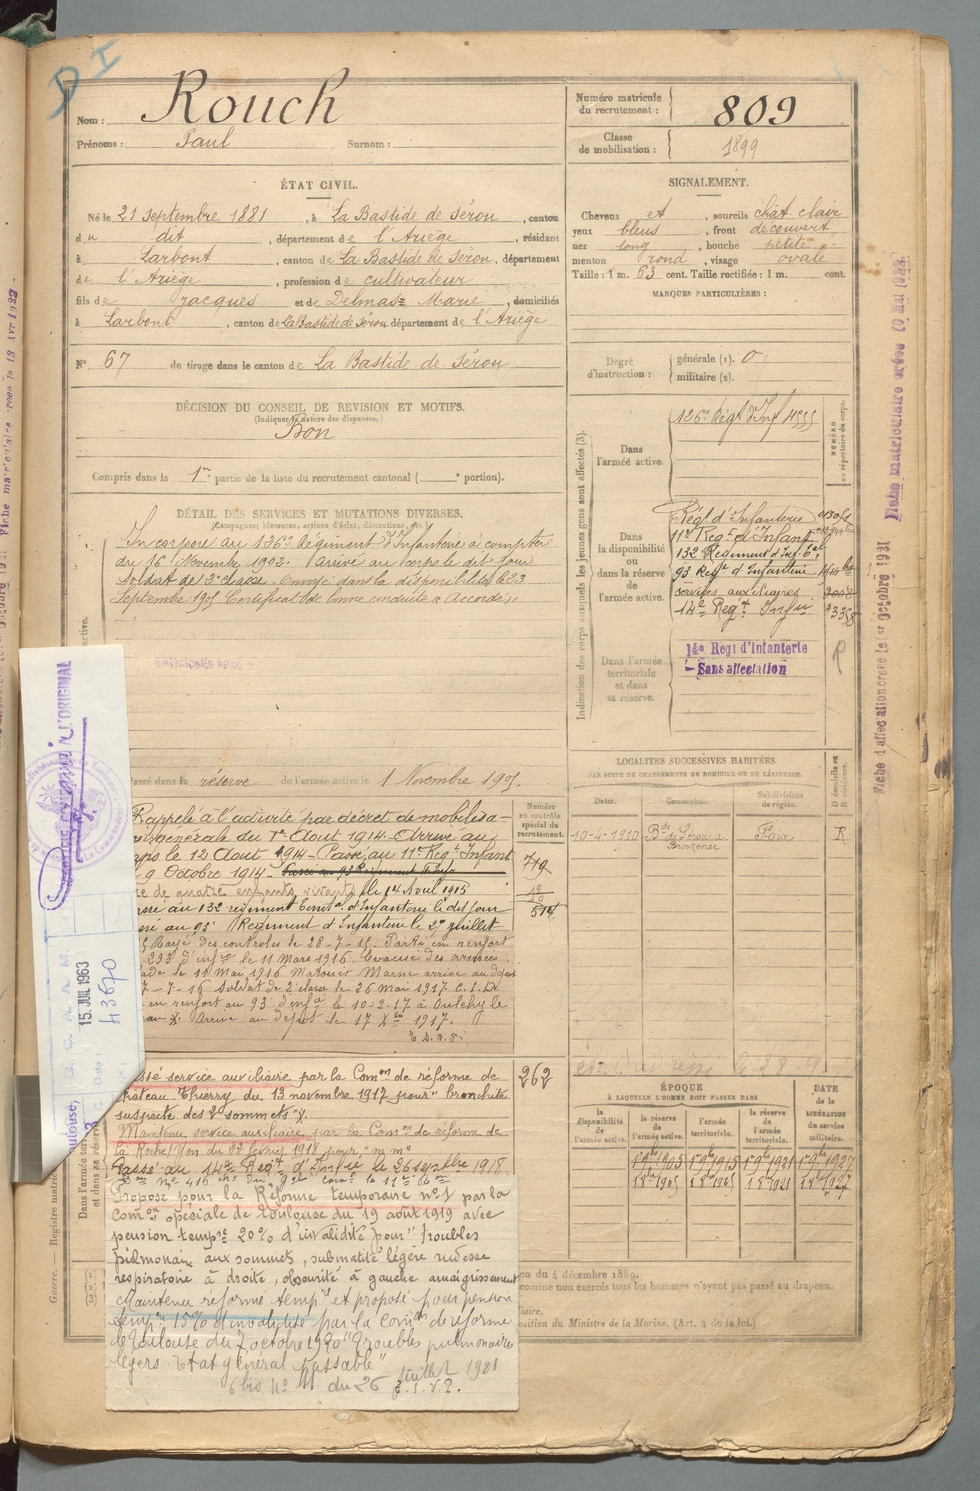 D I
Nom : Rouch
Prénoms : Paul Surnom :
Numéro matricule du recrutement : 809
Classe de mobilisation : 1899
ÉTAT CIVIL.
Né le 21 septembre 1881, à La Bastide de Sérou, canton
du dit, département de l'Ariège, résidant
à Larbont, canton de La Bastide de Sérou, département
de l'Ariège, profession de cultivateur
fils de Jacques et de Delmas Marie, domiciliés
à Larbont, canton de La Bastide de Sérou département de l'Ariège
N° 67 de tirage dans le canton de La Bastide de Sérou
SIGNALEMENT.
Cheveux et, sourcils chât. clair
yeux bleus, front découvert
nez long, bouche petite
menton rond, visage ovale
Taille : 1 m. 63 cent. Taille rectifiée : 1 m. cent.
MARQUES PARTICULIÈRES :
Degré d'instruction : générale (1). 0
militaire (2).
DÉCISION DU CONSEIL DE REVISION ET MOTIFS.
(Indiquer la nature des dispenses.)
Bon
Compris dans la 1re partie de la liste du recrutement cantonal ( e portion).
DÉTAIL DES SERVICES ET MUTATIONS DIVERSES.
(Campagnes; blessures, actions d'éclat, décorations, etc.)
Incorporé au 126e Régiment d'Infanterie à compter
du 16 Novembre 1902. Arrivé au corps le dit jour
Soldat de 2e classe. Envoyé dans la disponibilité le 23
Septembre 1905 Certificat de bonne conduite « Accordé »
Passé dans la réserve de l'armée active le 1 Novembre 1905.
Rappelé à l'activité par décret de mobilisa-
générale du 1er Août 1914 Arrivé au
corps le 12 Août 1914 Passé au 11e Régt Infant
9 Octobre 1914
de quatre enfants vivants le 14 Avril 1915
au 132 régiment Territ d'Infanterie le dit jour
au 93 Régiment d'Infanterie le 27 juillet
Rayé des controles le 28-7-15. Parti en renfort
233 d'infie le 11 Mars 1916. Evacué des armées
le 11 Mai 1916 Marne arrivé au dépôt
7-7-16 Soldat de 2 classe le 26 mai 1917 C.I.D.
en renfort au 93 d'infie le 10-2-17 à Oulchy le
Arrivé au dépôt le 17 Xbre 1917.
719
514
262
Passé service auxiliaire par la Comon de réforme de
Château Thierry du 13 novembre 1917 pour "bronchite
suspecte des 2 sommets".
Maintenu service auxiliaire par la Comon de réforme de
la Roche s/Yon du 28 février 1918 pour, m mo
Passé au 14e Régt d'Infie le 26 septbre 1918
Proposé pour la Réforme temporaire no 1 par la
Comon spéciale de Toulouse du 19 août 1919 avec
pension tempre 20% d'invalidité pour "troubles
pulmonaires aux sommets, submatité légère rudesse
respiratoire à droite, obscurité à gauche amaigrissement
Maintenu réformé tempre et proposé pour pension
tempre 15% d'invalidité par la Comon de réforme
de Toulouse du 7 octobre 1920 "Troubles pulmonaires
légers. Etat général passable"
du 26 juillet 1921
Indication des corps auxquels les jeunes gens sont affectés (3).
NUMÉRO au répertoire du corps.
Dans l'armée active. 126e Régt d'Inf 4555
Dans la disponibilité ou dans la réserve de l'armée active.
Régt d'Infanterie
11e Régt d'Infant
132 Régiment d'Inf.
93 Régt d'Infanterie
services auxiliaires
14e Régt Infie
Dans l'armée territoriale et dans sa réserve.
14e Régt d'Infanterie
Sans affectation
LOCALITÉS SUCCESSIVES HABITÉES
PAR SUITE DE CHANGEMENTS DE DOMICILE OU DE RÉSIDENCE.
Dates. Communes. Subdivisions de région. D domicile ou R résidence.
10-4-1910 Bde de Sérou à Brouzenac Foix R
Numéro au contrôle spécial du recrutement.
ÉPOQUE
À LAQUELLE L'HOMME DOIT PASSER DANS
la disponibilité de l'armée active. la réserve de l'armée active. l'armée territoriale. la réserve de l'armée territoriale.
DATE de la LIBÉRATION du service militaire.
1 9bre 1905 1 9bre 1915 1 9bre 1921 1 9bre 1927
on du 4 décembre 1889.
comme non exercés tous les hommes n'ayant pas passé au drapeau.
osition du Ministre de la Marine. (Art. 4 de la loi.)
Fiche matriculaire créée 10 Mai 1922
Fiche d'affectation créée le 1er Octobre 1921
L'ORIGINAL
15 JUIL 1963
43670
Toulouse,
Date :
Guerre. — Registre matric
Dans l'armée terr
et dans sa réserve